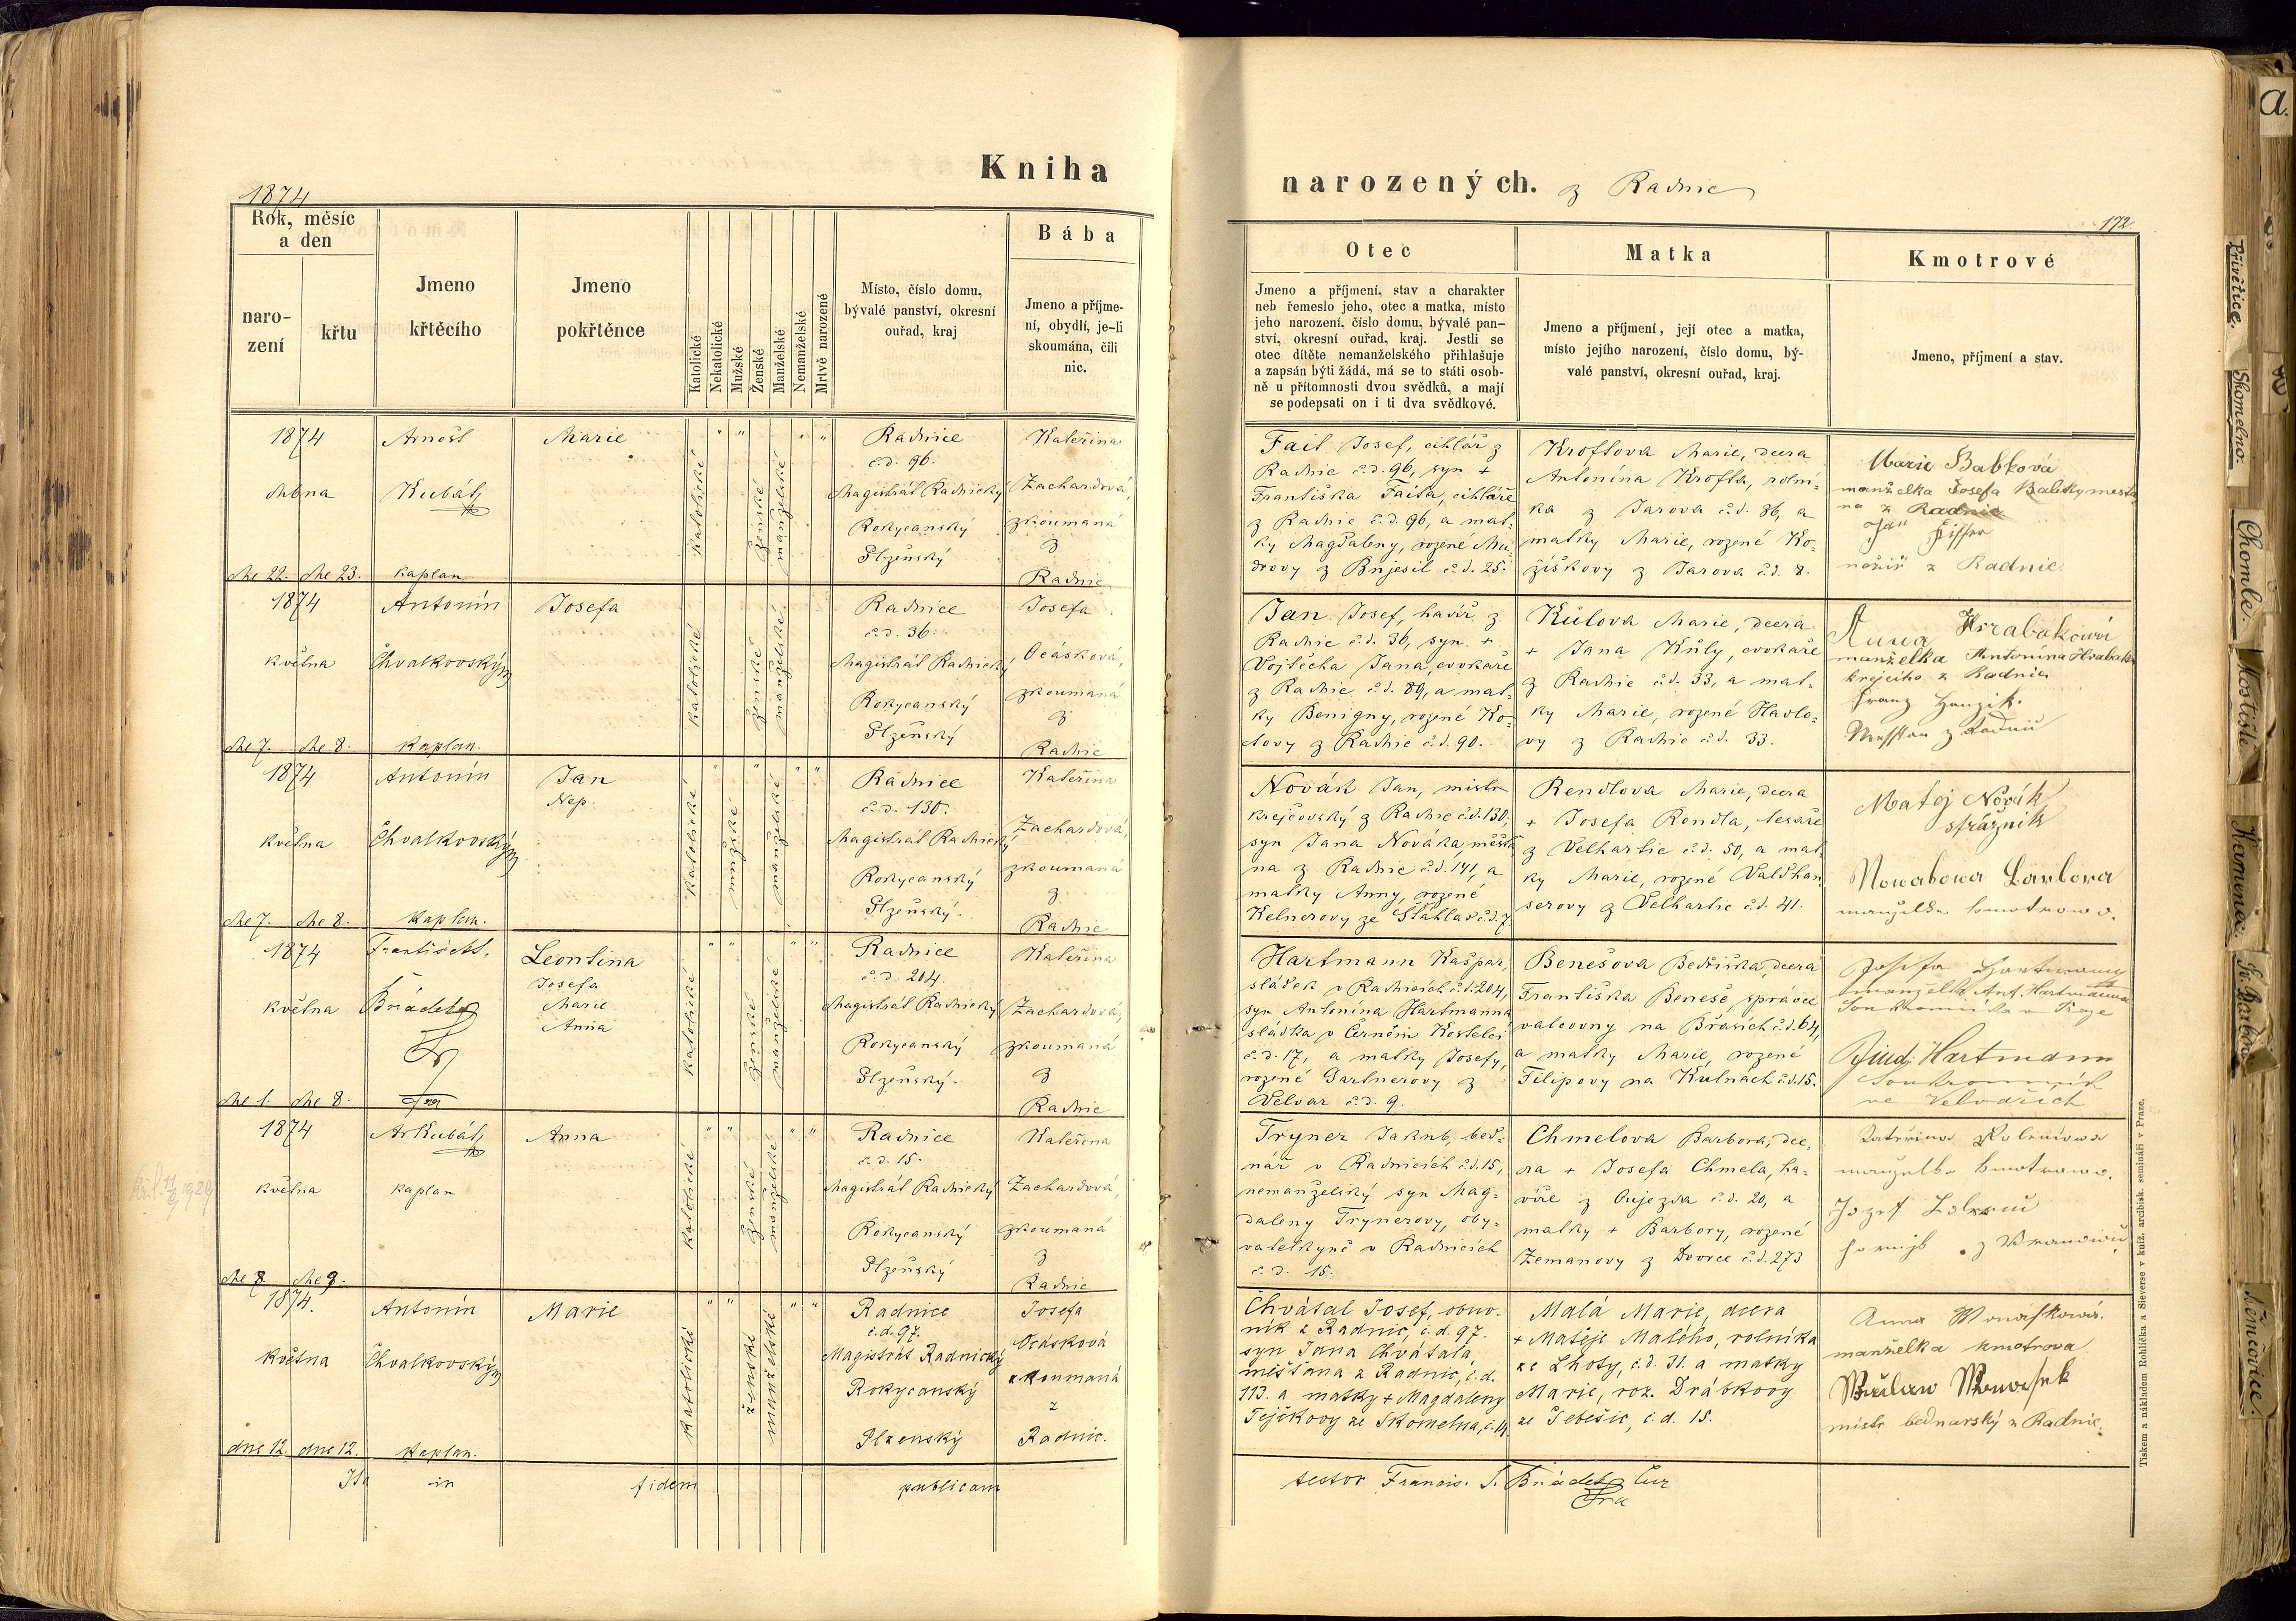 1874
Kniha
narozených. z Radnic
172
Rok, měsíc
a den
naro-
zení
křtu
Jmeno
křtěcího
Jmeno
pokřtěnce
Katolické
Nekatolické
Mužské
Ženské
Manželské
Nemanželské
Mrtvě narozené
Místo, číslo domu,
bývalé panství, okresní
ouřad, kraj
Bába
Jmeno a příjme-
ní, obydlí, je-li
skoumána, čili
nic.
Otec
Jmeno a příjmení, stav a charakter
neb řemeslo jeho, otec a matka, místo
jeho narození, číslo domu, bývalé pan-
ství, okresní ouřad, kraj. Jestli se
otec dítěte nemanželského přihlašuje
a zapsán býti žádá, má se to státi osob-
ně u přítomnosti dvou svědků, a mají
se podepsati on i ti dva svědkové.
Matka
Jmeno a příjmení, její otec a matka,
místo jejího narození, číslo domu, bý-
valé panství, okresní ouřad, kraj.
Kmotrové
Jmeno, příjmení a stav.
1874
dubna
dne 22. dne 23.
Arnošt
Kubát,
kaplan
Marie
katolické
ženské
manželské
Radnice
č.d. 96.
Magistrát Radnický
Rokycanský
Plzeňský
Kateřina
Zachardová,
zkoumaná
z
Radnic
Fait Josef, cihlář z
Radnic č.d. 96, syn +
Františka Faita, cihláře
z Radnic č.d. 96, a mat-
ky Magdaleny, rozené Mu-
drovy z Bujesil č.d. 25.
Kroftova Marie, dcera
Antonína Krofta, rolní-
ka z Jarova č.d. 86, a
matky Marie, rozené Ko-
žíškovy z Jarova č.d. 8.
Marie Babková
manželka Josefa Babky mesta
na z Radnic
nožíř z Radnic.
1874
května
dne 7. dne 8.
Antonín
Chvalkovský
kaplan.
Josefa
katolické
ženské
manželské
Radnice
č.d. 36.
Magistrát Radnický
Rokycanský
Plzeňský
Josefa
Ocásková,
zkoumaná
z
Radnic
Jan Josef, havíř z
Radnic č.d. 36, syn +
Vojtěcha Jana, cvokaře
z Radnic č.d. 89, a mat-
ky Benigny, rozené Ko-
tovy z Radnic č.d. 90.
Kůlova Marie, dcera
+ Jana Kůly, cvokaře
z Radnic č.d. 33, a mat-
ky Marie, rozené Havlo-
vy z Radnic č.d. 33.
Anna Hrabakowá
manželka Antonína Hrabaka
krejcího z Radnic
1874
května
dne 7. dne 8.
Antonín
Chvalkovský
kaplan.
Jan
Nep.
katolické
mužské
manželské
Radnice
č.d. 130.
Magistrát Radnický
Rokycanský
Plzeňský.
Kateřina
Zachardová,
zkoumaná
z
Radnic
Novák Jan, mistr
krejčovský z Radnic č.d. 130,
syn Jana Nováka, měšťa
na z Radnic č.d. 141, a
matky Anny, rozené
Kelnerovy ze Šťáhlav č.d. 7
Rendlova Marie, dcera
+ Josefa Rendla, tesaře
z Velhartic č.d. 50, a mat-
ky Marie, rozené Valdhau
serovy z Velhartic č.d. 41.
Matěj Novák
strážnik
manželka kmotrowa.
1874
května
dne 1. dne 8.
František
Leontina
Josefa
Marie
Anna
katolické
ženské
manželské
Radnice
č.d. 204.
Magistrát Radnický
Rokycanský
Plzeňský.
Kateřina
Zachardová,
zkoumaná
z
Radnic
Hartmann Kašpar,
sládek v Radnicích č.d. 204,
syn Antonína Hartmanna
sládka v Černém Kostelci
č.d. 17, a matky Josefy,
rozené Gartnerovy z
Velvar č.d. 9.
Benešova Bedřiška, dcera
Františka Beneše, správce
valcovny na Břasích č.d. 64,
a matky Marie, rozené
Filipovy na Kutnách č.d. 15.
manželka Ant. Hartmanna
Hartmann
1874
května
dne 8 dne 9.
Ar Kubát,
kaplan
Anna
katolické
ženské
manželské
Radnice
č.d. 15.
Magistrát Radnický
Rokycanský
Plzeňský
Kateřina
Zachardová,
zkoumaná
z
Radnic
Tryner Jakub, bed-
nár v Radnicích č.d. 15,
nemanželský syn Mag-
daleny Trynerovy, oby-
vatelkyně v Radnicích
č.d. 15.
Chmelova Barbora, dce-
ra + Josefa Chmela, ha-
víře z Oujezda č.d. 20, a
matky + Barbory, rozené
Zemanovy z Dvorce č.d. 273
manželka kmotrowa.
1874.
května
dne 12. dne 12.
Antonín
Chvalkovský
kaplan.
Marie
katolické
ženské
manželské
Radnice
č.d. 97.
Magistrát Radnický
Rokycanský
Plzenský
Josefa
Ocásková
zkoumaná
z
Radnic.
Chvátal Josef, obuv-
ník z Radnic, č.d. 97.
syn Jana Chvátala,
mešťana z Radnic, č.d.
113. a matky + Magdaleny
Tejčkovy ze Skomelna, č. 14.
Malá Marie, dcera
+ Matěje Malého, rolníka
ze Lhoty, č.d. 31. a matky
Marie, roz. Drábkovy
ze Těběšic, č.d. 15.
manželka kmotrova
mistr bednarský z Radnic.
Ita in fidem publicam
testor Francis. S.
Tiskem a nákladem Rohlíčka a Sieverse v kníž. arcibisk. semináři v Praze.
a.
Přívětice.
Skomelno.
Chomle.
Hostitě
Kamenec
Sv. Barbora
Němčovice